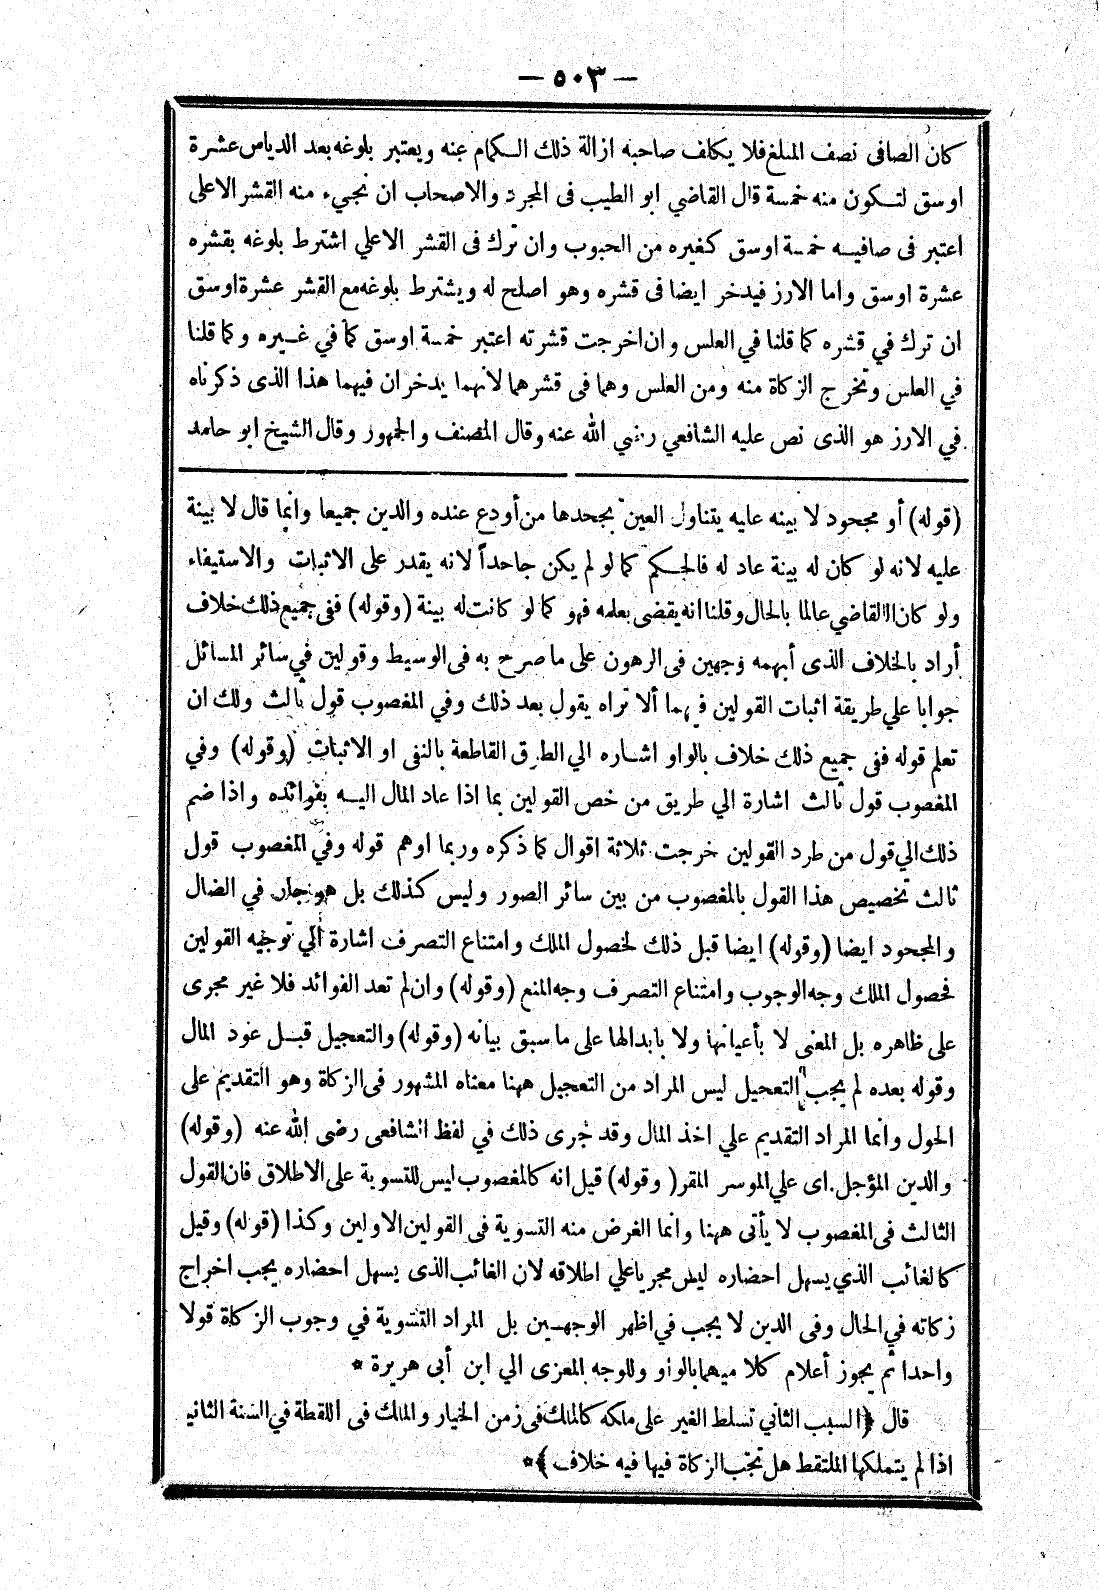 — ٥٠٣ —
كان الصافى نصف المبلغ فلا يكلف صاحبه ازالة ذلك الكمام عنه ويعتبر بلوغه بعد الدياس عشرة
اوسق لتكون منه خمسة قال القاضي ابو الطيب فى المجرد والاصحاب ان نجيء منه القشر الاعلى
اعتبر فى صافيه خمسة اوسق كغيره من الحبوب وان ترك فى القشر الاعلي اشترط بلوغه بقشره
عشرة اوسق واما الارز فيدخر ايضا فى قشره وهو اصلح له ويشترط بلوغه مع القشر عشرة اوسق
ان ترك في قشره كما قلنا في العلس وان اخرجت قشرته اعتبر خمسة اوسق كما في غيره وكما قلنا
في العلس وتخرج الزكاة منه ومن العلس وهما فى قشرهما لانهما يدخران فيهما هذا الذى ذكرناه
في الارز هو الذى نص عليه الشافعي رضي الله عنه وقال المصنف والجمهور وقال الشيخ ابو حامد
(قوله) أو مجحود لا بينه عليه يتناول العين بجحدها من أودع عنده والدين جميعا وانما قال لا بينة
عليه لانه لو كان له بينة عادله فالحكم كما لو لم يكن جاحداً لانه يقدر على الاثبات والاستيفاء
ولو كان القاضي عالما بالحال وقلنا انه يقضى بعلمه فهو كما لو كانت له بينة (وقوله) ففى جميع ذلك خلاف
أراد بالخلاف الذى أبهمه وجهين فى الرهون على ما صرح به فى الوسيط وقولين في سائر المسائل
جوابا علي طريقة اثبات القولين فيهما ألا تراه يقول بعد ذلك وفي المغصوب قول ثالث ولك ان
تعلم قوله ففى جميع ذلك خلاف بالواو اشاره الي الطرق القاطعة بالنفى او الاثبات (وقوله) وفي
المغصوب قول ثالث اشارة الي طريق من خص القولين بما اذا عاد المال اليه بفوائده واذا ضم
ذلك الي قول من طرد القولين خرجت ثلاثة اقوال كما ذكره وربما اوهم قوله وفي المغصوب قول
ثالث تخصيص هذا القول بالمغصوب من بين سائر الصور وليس كذلك بل هو جار في الضال
والمجحود ايضا (وقوله) ايضا قبل ذلك لحصول الملك وامتناع التصرف اشارة الي توجيه القولين
فحصول الملك وجه الوجوب وامتناع التصرف وجه المنع (وقوله) وان لم تعد الفوائد فلا غير مجرى
على ظاهره بل المعنى لا بأعيانها ولا بابدالها على ما سبق بيانه (وقوله) والتعجيل قبل عود المال
وقوله بعده لم يجب التعجيل ليس المراد من التعجيل ههنا معناه المشهور فى الزكاة وهو التقديم على
الحول وانما المراد التقديم علي اخذ المال وقد جرى ذلك في لفظ الشافعى رضى الله عنه (وقوله)
والدين المؤجل. اى علي الموسر المقر (وقوله) قيل انه كالمغصوب ليس للتسوية على الاطلاق فان القول
الثالث فى المغصوب لا يأتى ههنا وانما الغرض منه التسوية فى القولين الاولين وكذا (قوله) وقيل
كالغائب الذي يسهل احضاره ليس مجريا علي اطلاقه لان الغائب الذى يسهل احضاره يجب اخراج
زكاته في الحال وفى الدين لا يجب في اظهر الوجهين بل المراد التسوية في وجوب الزكاة قولا
واحدا ثم يجوز أعلام كلا ميهما بالواو وللوجه المعزى الي ابن أبى هريرة *
قال ﴿السبب الثاني تسلط الغير على ملكه كالملك فى زمن الخيار والملك فى اللقطة في السنة الثانية
اذا لم يتملكها الملتقط هل تجب الزكاة فيها فيه خلاف﴾ *